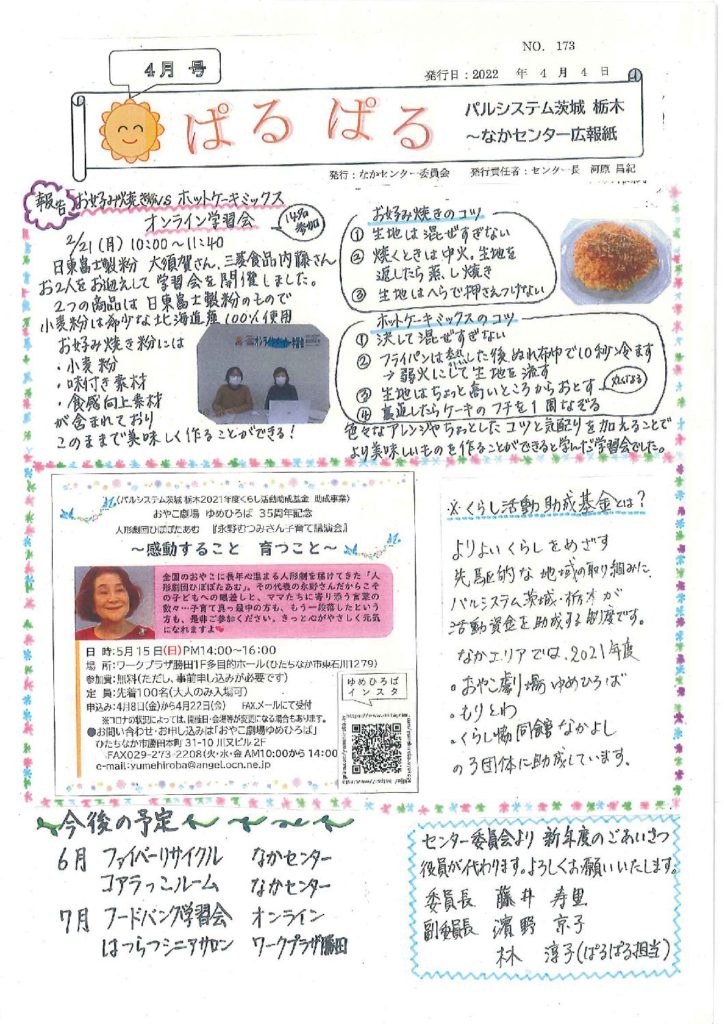 NO. 173
4月 号
発行日：2022 年 4 月 4 日
ぱる ぱる
パルシステム茨城 栃木
～なかセンター広報紙
発行：なかセンター委員会 発行責任者：センター長 河原 昌紀
報告
お好み焼き粉VS ホットケーキミックス
オンライン学習会
14名参加
2/21(月) 10:00～11:40
日東富士製粉 大須賀さん、三菱食品内藤さん
お2人をお迎えして学習会を開催しました。
2つの商品は日東富士製粉のもので
小麦粉は希少な北海道産100%使用
お好み焼き粉には
・小麦粉
・味付き素材
・食感向上素材
が含まれており
このままで美味しく作ることができる！
お好み焼きのコツ
① 生地は混ぜすぎない
② 焼くときは中火。生地を
返したら蒸し焼き
③ 生地はへらで押さえつけない
ホットケーキミックスのコツ
① 決して混ぜすぎない
② フライパンは熱した後ぬれ布巾で10秒冷ます
→ 弱火にして生地を流す
③ 生地はちょっと高いところからおとす
④ 裏返したらケーキのフチを1周なぞる
色々なアレンジやちょっとしたコツと気配りを加えることで
より美味しいものを作ることができると学んだ学習会でした。
〈パルシステム茨城 栃木2021年度くらし活動助成基金 助成事業〉
おやこ劇場 ゆめひろば 35周年記念
人形劇団ひぽぽたあむ 『永野むつみさん子育て講演会』
～感動すること 育つこと～
全国のおやこに長年心温まる人形劇を届けてきた「人
形劇団ひぽぽたあむ」。その代表の永野さんだからこそ
の子どもへの眼差しと、ママたちに寄り添う言葉の
数々…子育て真っ最中の方も、もう一段落したという
方も、是非ご参加ください。きっと心がやさしく元気
になれますよ❤
日 時：5月15日(日)PM14:00～16:00
場 所：ワークプラザ勝田1F多目的ホール(ひたちなか市東石川1279)
参加費：無料(ただし、事前申し込みが必要です)
定 員：先着100名(大人のみ入場可)
申込み：4月8日(金)から4月22日(金) FAX.メールにて受付
※コロナの状況によっては、開催日・会場等が変更になる場合もあります。
●お問い合わせ・お申し込みは「おやこ劇場ゆめひろば」
ひたちなか市勝田本町31-10 川又ビル2F
FAX029-273-2208(火・水・金 AM10:00から14:00
e-mail:yumehiroba@angel.ocn.ne.jp
ゆめひろば
インスタ
※くらし活動助成基金とは？
よりよいくらしをめざす
先駆的な地域の取り組みに、
パルシステム茨城・栃木が
活動資金を助成する制度です。
なかエリアでは、2021年度
・おやこ劇場ゆめひろば
・もりとわ
・くらし協同館なかよし
の3団体に助成しています。
今後の予定
6月 ファイバーリサイクル なかセンター
コアラっこルーム なかセンター
7月 フードバンク学習会 オンライン
はつらつシニアサロン ワークプラザ勝田
センター委員会より 新年度のごあいさつ
役員が代わります。よろしくお願いいたします。
委員長 藤井 寿里
副委員長 濱野 京子
林 淳子(ぱるぱる担当)